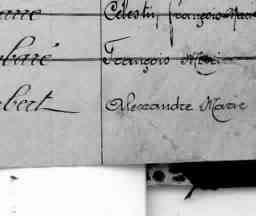 Célestin, François Marie
François Marie
bert Alexandre Marie